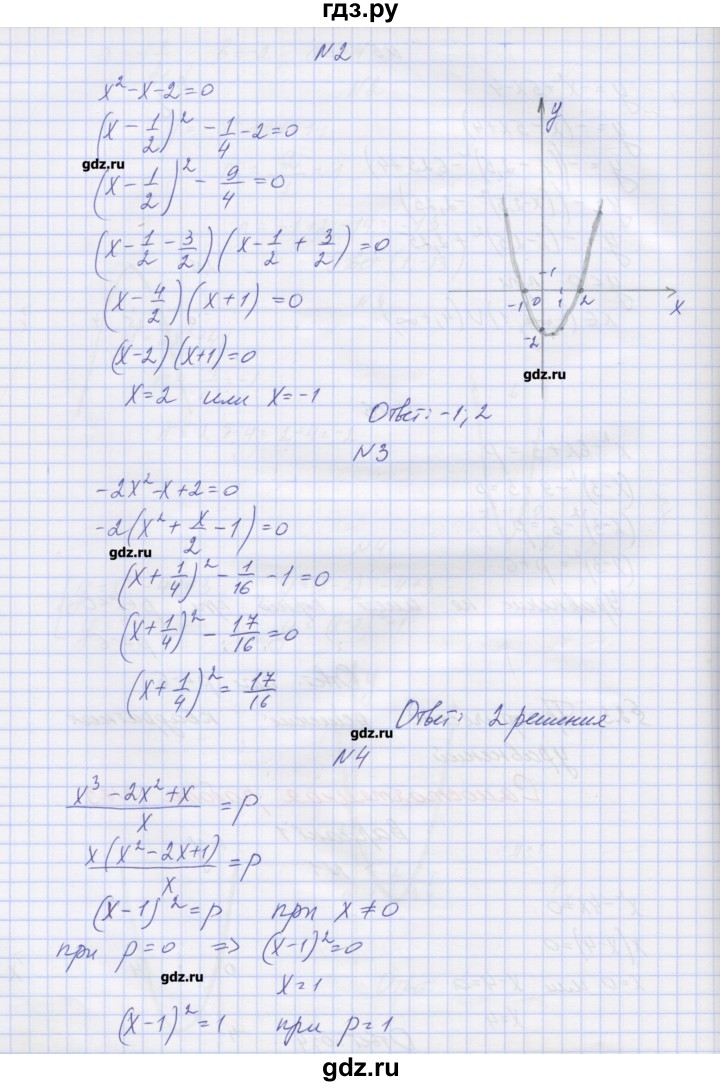 гдз.ру
N2
x² - x - 2 = 0
(x - 1/2)² - 1/4 - 2 = 0
gdz.ru
(x - 1/2)² - 9/4 = 0
(x - 1/2 - 3/2)(x - 1/2 + 3/2) = 0
(x - 4/2)(x + 1) = 0
(x - 2)(x + 1) = 0
x = 2 или x = -1
y
-1
-1 0 1 2 x
-2
gdz.ru
Ответ: -1; 2
N3
-2x² - x + 2 = 0
-2(x² + x/2 - 1) = 0
gdz.ru
(x + 1/4)² - 1/16 - 1 = 0
(x + 1/4)² - 17/16 = 0
(x + 1/4)² = 17/16
Ответ: 2 решения
gdz.ru
N4
x³ - 2x² + x / x = p
x(x² - 2x + 1) / x = p
(x - 1)² = p при x ≠ 0
при p = 0 => (x - 1)² = 0
gdz.ru
x = 1
(x - 1)² = 1 при p = 1
gdz.ru